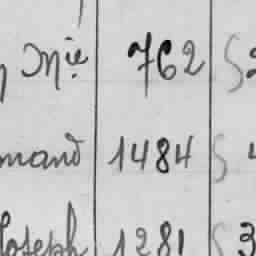 Mie 762 § 2
mand 1484 § 4
Joseph 1281 § 3